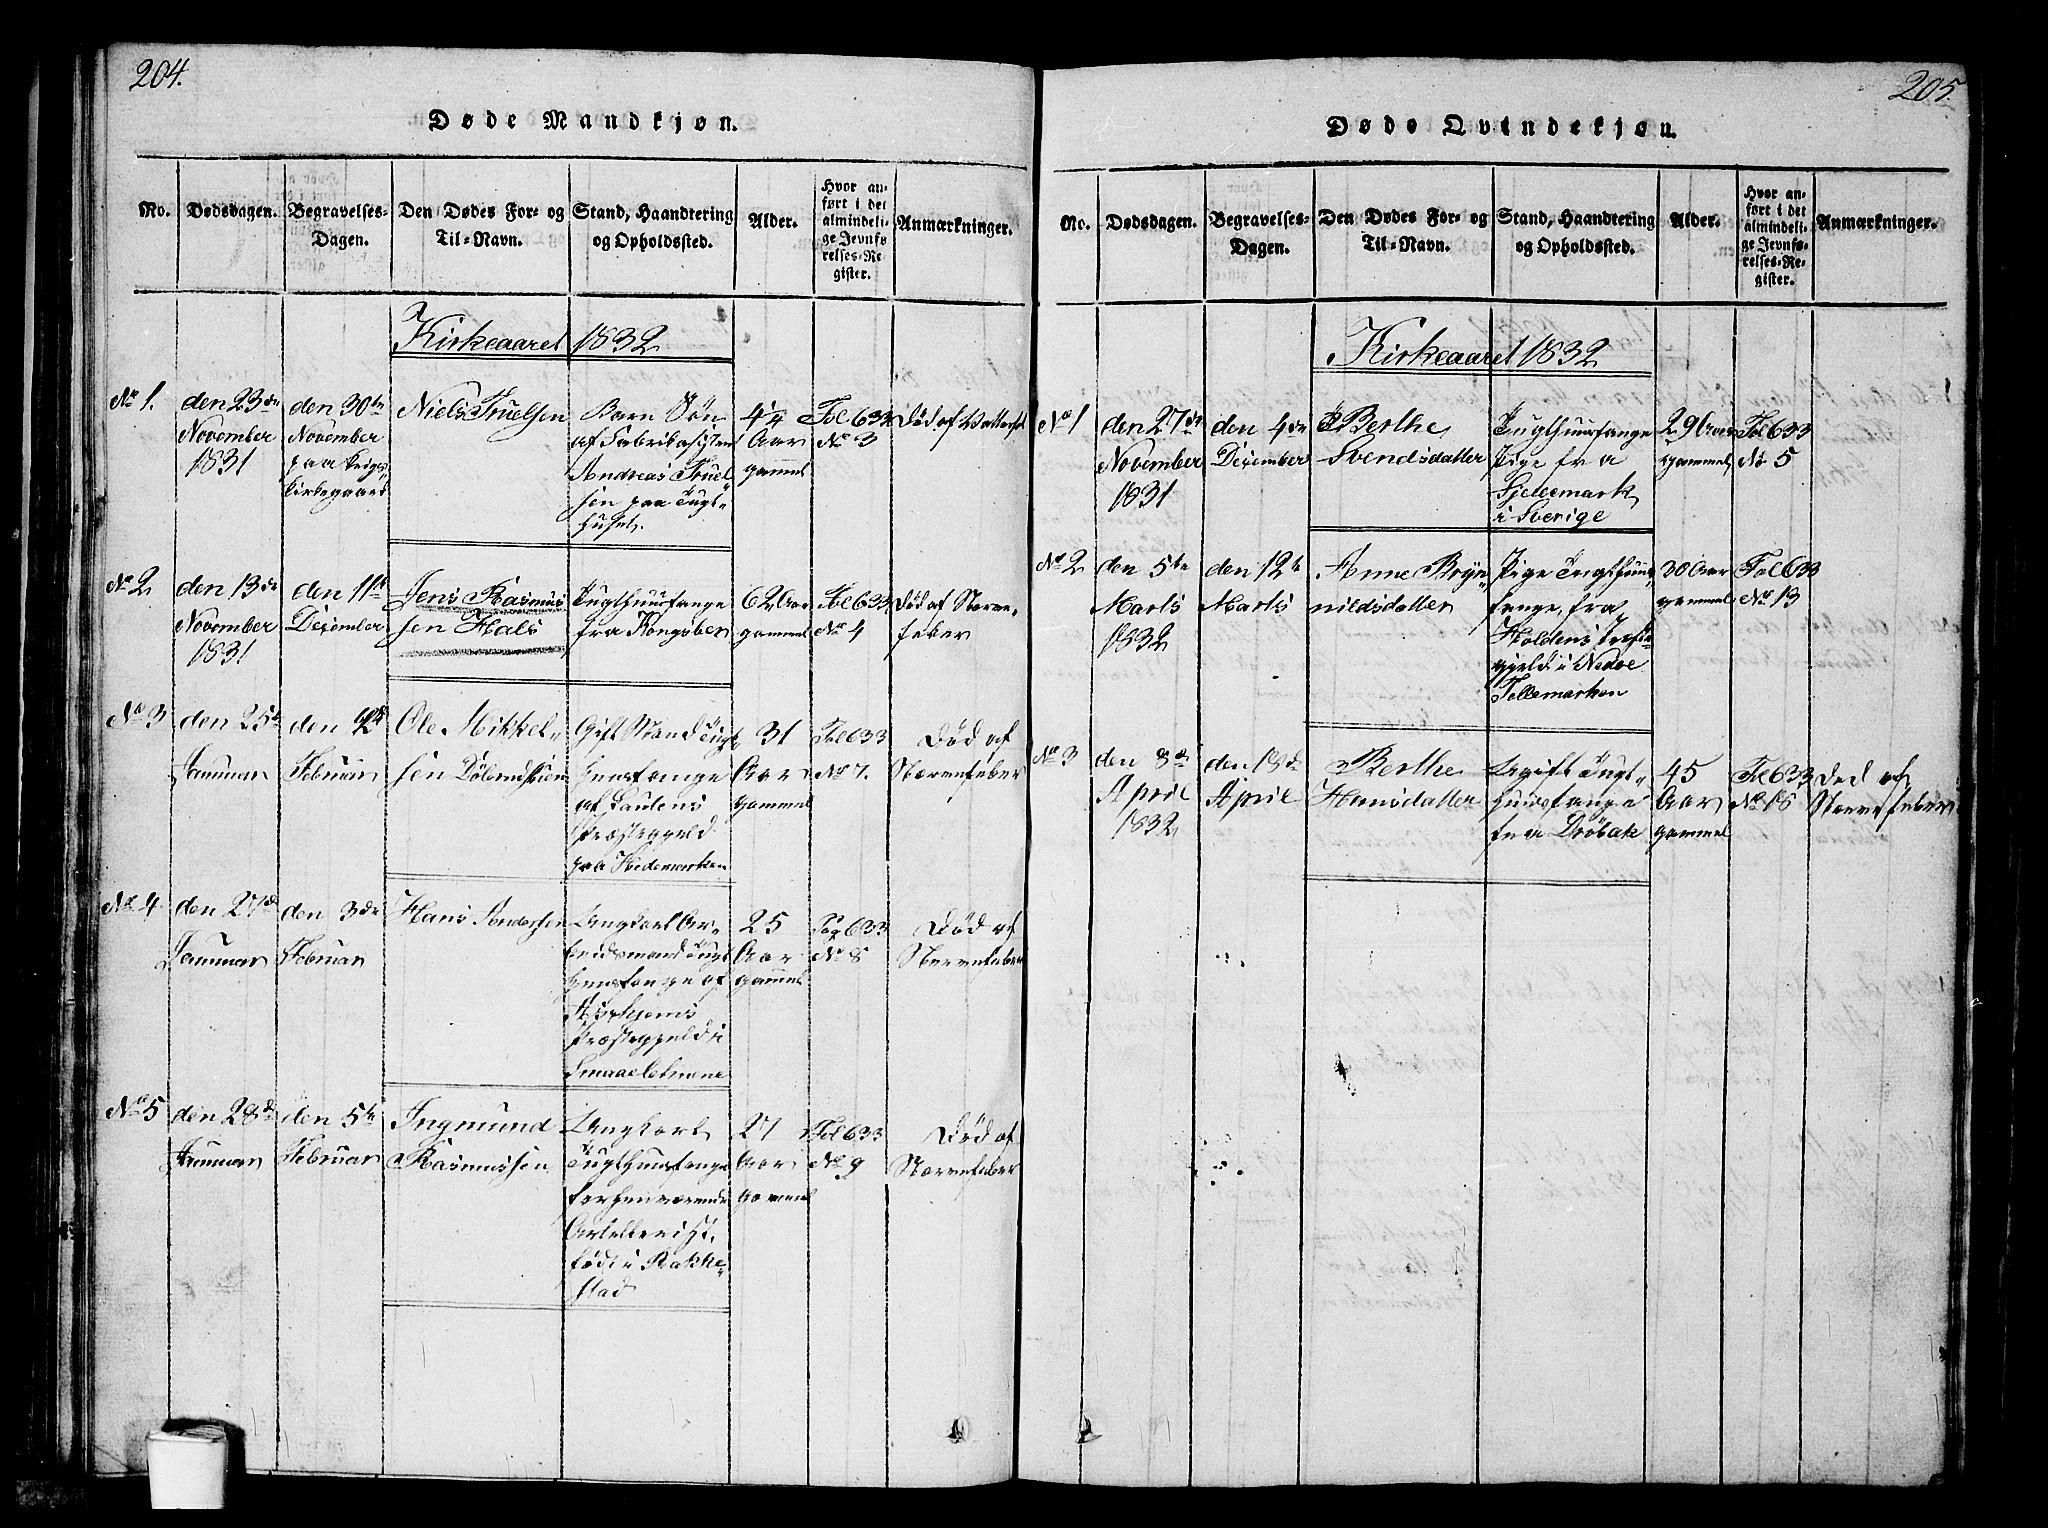 204.
Døde Mandkjøn.
No.
Dødsdagen.
Begravelses-
Dagen.
Den Dødes For- og
Til-Navn.
Stand, Haandtering
og Opholdssted.
Alder.
Hvor an-
ført i det
almindeli-
ge Jevnfø-
relses-Re-
gister.
Anmærkninger.
Kirkeaaret 1832
No 1.
den 23de
November
1831
den 30te
November
paa
Kirkegaard
Niels Truelsen
Barn Søn
af
Andreas Truel
sen paa Tugt-
huset.
4
Aar
gammel
Fol 633
No 3
Død af
No 2
den 13de
November
1831
den 11te
December
Jens Rasmus
sen Hals
Tugthuusfange
fra Kongsberg
62 Aar
gammel
Fol 633
No 4
Død af Nerve-
feber
No 3
den 25de
Januar
den
Februar
Ole Mikkel-
sen
Gift Mand Tugt-
huusfange
af Løitens
Præstegjeld
paa Hedemarken
31
Aar
gammel
Fol 633
No 7.
Død af
Nervefeber
No 4
den 27de
Januar
den 3de
Februar
Hans Andersen
Ungkarl Ar-
beidsmand Tugt
huusfange af
Præstegjeld i
Smaaelehnene
25
Aar
gammel
Pag 633
No 8
Død af
Nervefeber
No 5
den 28de
Januar
den 5te
Februar
Ingmund
Rasmussen
Ungkarl
Tugthuusfange
forhenværende
Artellerist,
født i Rakke-
stad
27
Aar
gammel
Fol 633
No 9
Død af
Nervefeber
205.
Døde Qvindekjøn.
No.
Dødsdagen.
Begravelses-
Dagen.
Den Dødes For- og
Til-Navn.
Stand, Haandtering
og Opholdssted.
Alder.
Hvor an-
ført i det
almindeli-
ge Jevnfø-
relses-Re-
gister.
Anmærkninger.
Kirkeaaret 1832
No 1
den 27de
November
1831
den 4de
December
Berthe
Svendsdatter
Tugthuusfange
Pige fra
i Sverige
29 Aar
gammel
Fol 633
No 5
No 2
den 5te
Marts
1832
den 12te
Marts
Anne Bryn-
nildsdatter
Pige Tugthuus-
fange, fra
Holdens Præste-
gjeld i Nedre
Tellemarken
30 Aar
gammel
Fol 633
No 13
No 3
den 8de
April
1832
den 13de
April
Berthe
Hansdatter
Ugift Tugt-
huusfange
fra Drøbak
45
Aar
gammel
Fol 633
Død af
Nervefeber